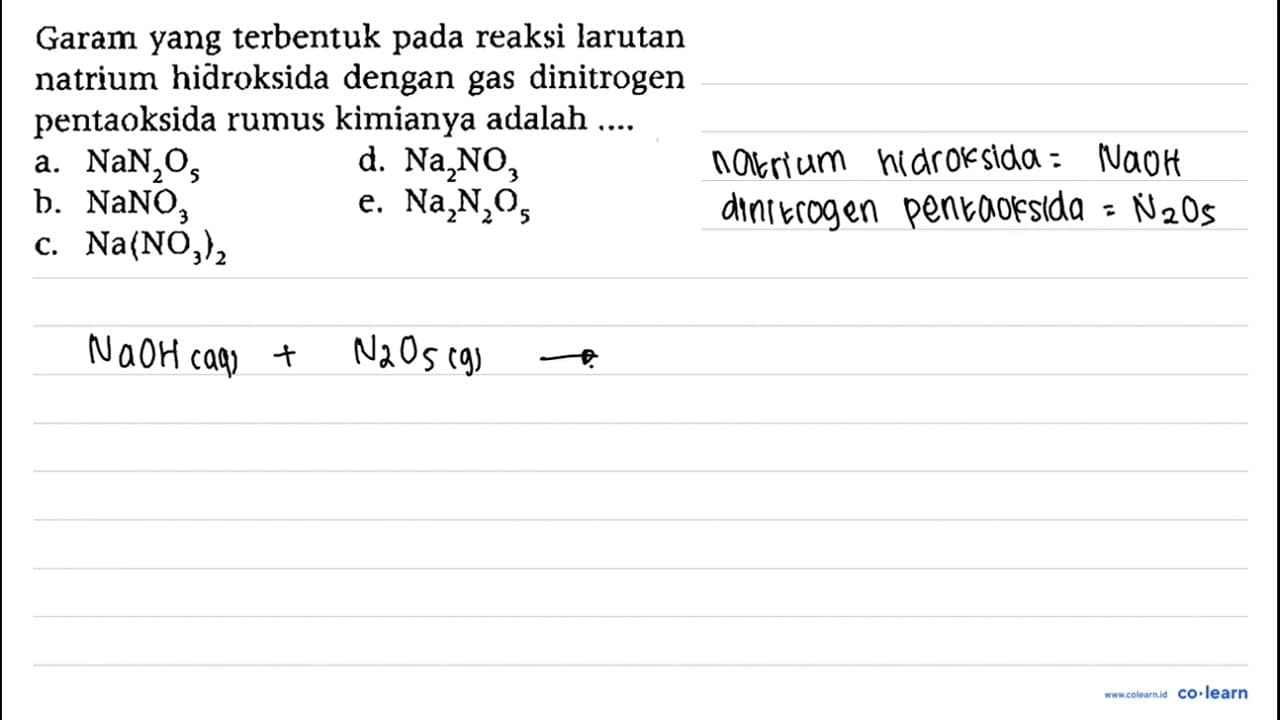 Garam yang terbentuk pada reaksi larutan
natrium hidroksida dengan gas dinitrogen
pentaoksida rumus kimianya adalah ....
a. NaN₂O₅
b. NaNO₃
c. Na(NO₃)₂
d. Na₂NO₃
e. Na₂N₂O₅
natrium hidroksida = NaOH
dinitrogen pentaoksida = N₂O₅
NaOH (aq) + N₂O₅ (g) →
www.colearn.id co·learn